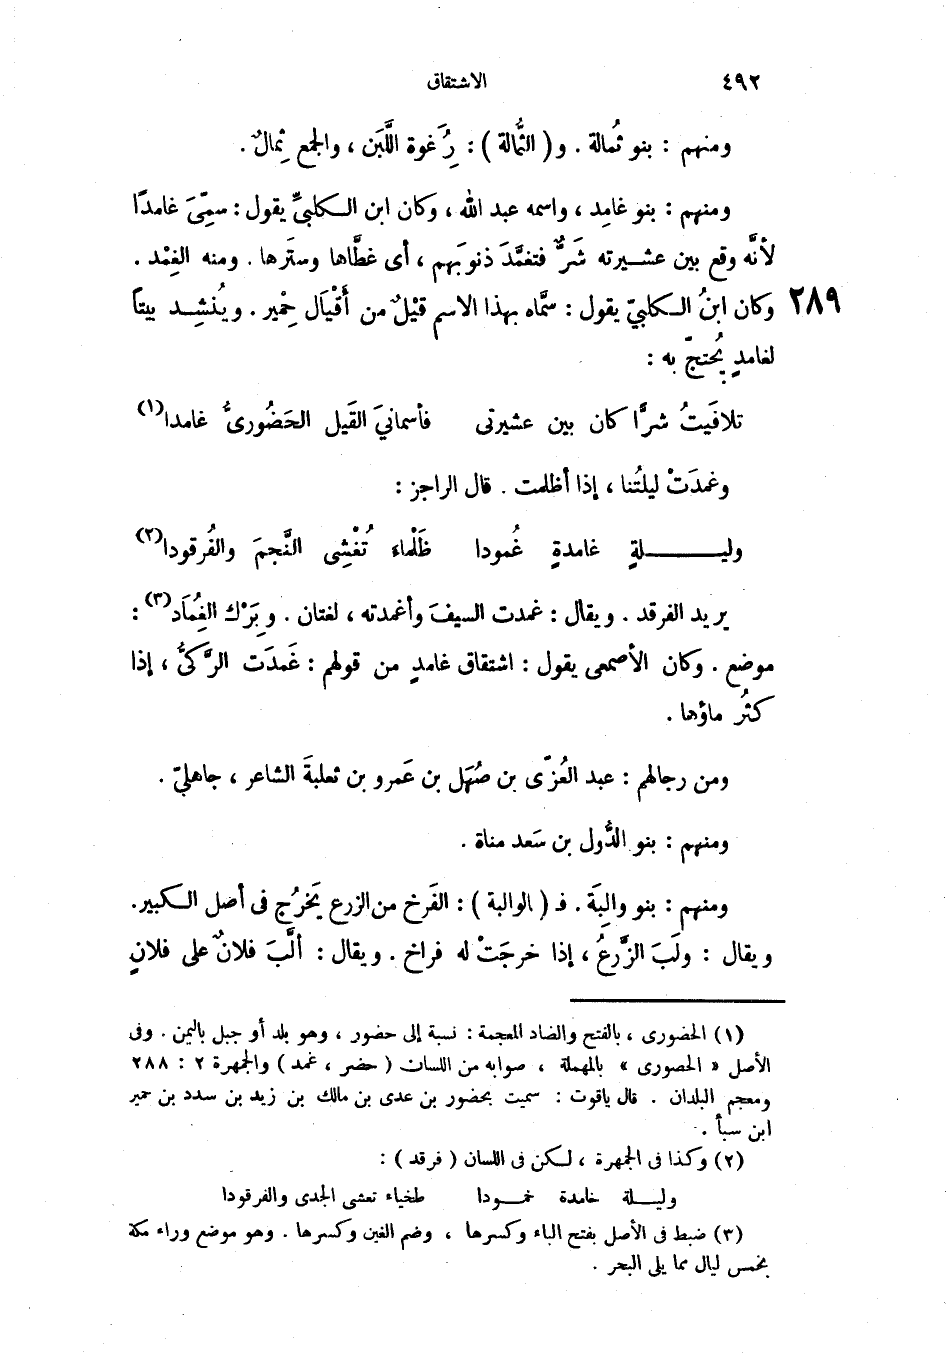 ٤٩٢
الاشتقاق
ومنهم : بنو ثُمالة . و ( الثُّمالة ) : رُِغَوة اللَّبَن ، والجمع ثِمالٌ .
ومنهم : بنو غامِد ، واسمه عبد الله ، وكان ابن الكلبيّ يقول : سمِّىَ غامدًا
لأنَّه وقع بين عشيرته شَرٌّ فتغمَّدَ ذنوبَهم ، أى غطَّاها وستَرها . ومنه الغِمْد .
٢٨٩ وكان ابنُ الكلبيّ يقول : سمَّاه بهذا الاسم قَيْلٌ من أَقْيَال حِمْير . ويُنشِد بيتاً
لغامدٍ يُحتجّ به :
تلافَيتُ شرًّا كان بين عشيرتى فأسمانيَ القَيل الحَضُورىُّ غامدا(١)
وغمدَتْ ليلتُنا ، إذا أظلمت . قال الراجز :
وليـــلةٍ غامدةٍ غُمودا ظَلْماء تُغْشِى النَّجمَ والفُرقودا(٢)
يريد الفرقد . ويقال : غمدت السيفَ وأغمدته ، لغتان . وبَِرْك الغُِمَاد(٣) :
موضع . وكان الأصمعى يقول : اشتقاق غامدٍ من قولهم : غَمدَت الرَّكىُّ ، إذا
كثُر ماؤها .
ومن رجالهم : عبد العُزّى بن صُهَل بن عَمرو بن ثعلبةَ الشاعر ، جاهليّ .
ومنهم : بنو الدُّول بن سَعد مناة .
ومنهم : بنو والِبَة . فـ ( الوالبة ) : الفَرخ من الزرع يَخرُج فى أصل الكبير .
ويقال : ولَبَ الزَّرعُ ، إذا خرجَتْ له فراخ . ويقال : ألَّبَ فلانٌ على فلانٍ
(١) الحضورى ، بالفتح والضاد المعجمة : نسبة إلى حضور ، وهو بلد أو جبل باليمن . وفى
الأصل « الحصورى » بالمهملة ، صوابه من اللسان ( حضر ، غمد ) والجمهرة ٢ : ٢٨٨
ومعجم البلدان . قال ياقوت : سميت بحضور بن عدى بن مالك بن زيد بن سدد بن حمير
ابن سبأ .
(٢) وكذا فى الجمهرة ، لكن فى اللسان ( فرقد ) :
وليـلة خامدة خمـودا طخياء تعشى الجدى والفرقودا
(٣) ضبط فى الأصل بفتح الباء وكسرها ، وضم الغين وكسرها . وهو موضع وراء مكة
بخمس ليال مما يلى البحر .